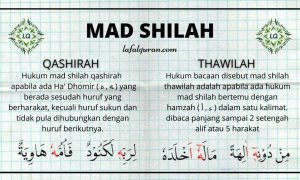 MAD SHILAH
lafalquran.com
LQ
LQ
QASHIRAH
Hukum mad shilah qashirah
apabila ada Ha' Dhomir (ه , ـه) yang
berada sesudah huruf yang
berharakat, kecuali huruf sukun dan
tidak pula dihubungkan dengan
huruf berikutnya.
لِرَبِّهٖ لَكَنُوْدٌ فَاُمُّهٗ هَاوِيَةٌ
THAWILAH
Hukum bacaan disebut mad shilah
thawilah adalah apabila ada hukum
mad shilah bertemu dengan
hamzah (أ , ء) dalam satu kalimat.
dibaca panjang sampai 2 setengah
alif atau 5 harakat
مِنْ دُوْنِهٖٓ اٰلِهَةً مَالَهٗٓ اَخْلَدَهٗ